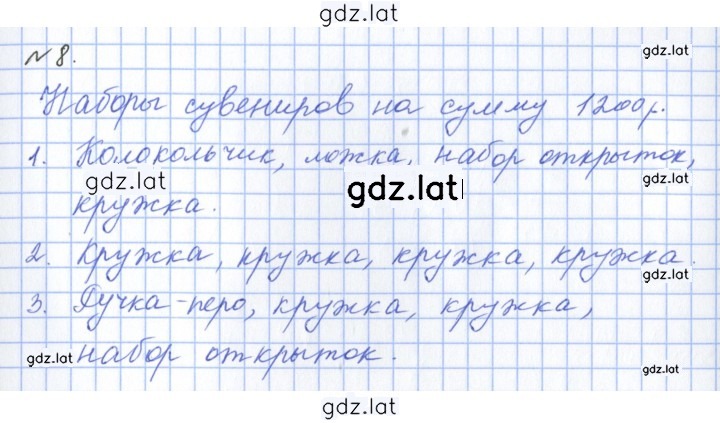 gdz.lat
№ 8.
gdz.lat
Наборы сувениров на сумму 1200р.
1. Колокольчик, ложка, набор открыток,
gdz.lat gdz.lat gdz.lat
кружка.
2. Кружка, кружка, кружка, кружка.
gdz.lat
3. Ручка-перо, кружка, кружка,
набор открыток.
gdz.lat gdz.lat
gdz.lat